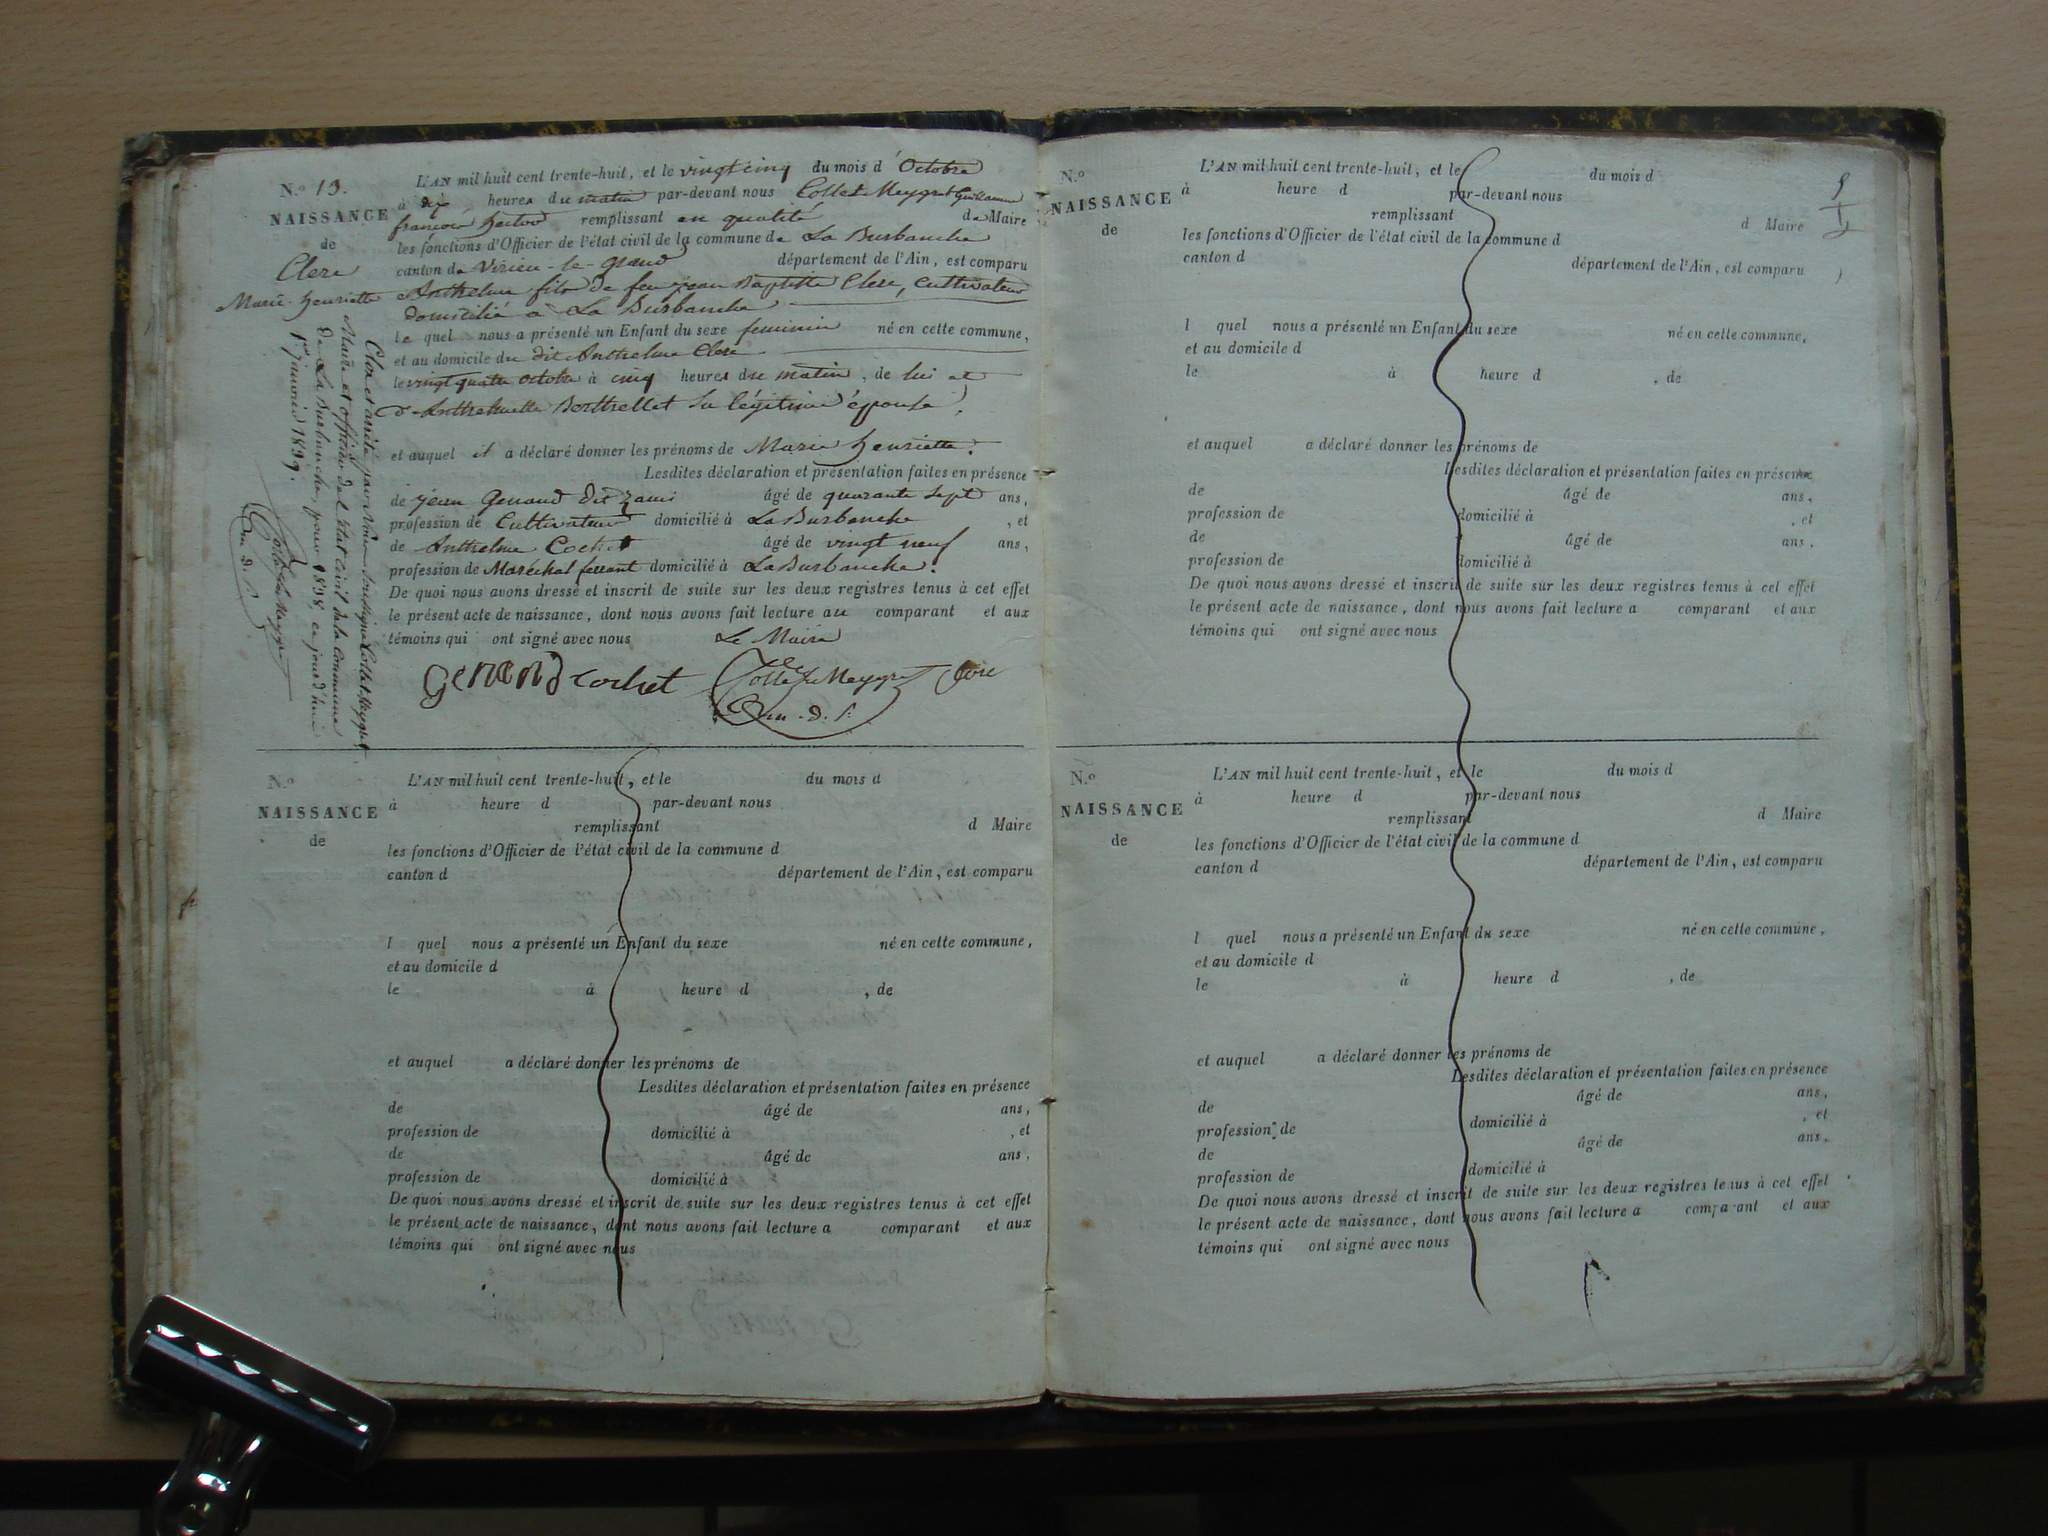 N.o 13.
NAISSANCE
de
Clerc
Marie henriette
L'AN mil huit cent trente-huit, et le vingt cinq du mois d'Octobre
à dix heures du matin par-devant nous Collet Meygret Guillaume
françois hector remplissant en qualité de Maire
les fonctions d'Officier de l'état civil de la commune de La Burbanche
canton de Virieu-le-grand département de l'Ain, est comparu
Anthelme fils de feu jean Baptiste Clerc, Cultivateur
domicilié à La Burbanche
le quel nous a présenté un Enfant du sexe feminin né en cette commune,
et au domicile du dit Anthelme Clerc
le vingt quatre octobre à cinq heures du matin, de lui et
d'Anthelmette Berthellet sa légitime épouse,
et auquel il a déclaré donner les prénoms de Marie henriette.
Lesdites déclaration et présentation faites en présence
de jean Genand dit âgé de quarante sept ans,
profession de Cultivateur domicilié à La Burbanche, et
de Anthelme Cochet âgé de vingt neuf ans,
profession de Maréchal ferrant domicilié à La Burbanche.
De quoi nous avons dressé et inscrit de suite sur les deux registres tenus à cet effet
le présent acte de naissance, dont nous avons fait lecture au comparant et aux
témoins qui ont signé avec nous Le Maire
Genand cochet Collet Meygret Clerc
Clos et arrêté par Nous soussigné Collet Meygret
Maire et officier de l'état civil de la Commune
de La Burbanche, pour 1838, ce jourd'hui
1er janvier 1839.
Collet Meygret
N.o
NAISSANCE
de
L'AN mil huit cent trente-huit, et le du mois d
à heure d par-devant nous
remplissant d Maire
les fonctions d'Officier de l'état civil de la commune d
canton d département de l'Ain, est comparu
l quel nous a présenté un Enfant du sexe né en cette commune,
et au domicile d
le à heure d , de
et auquel a déclaré donner les prénoms de
Lesdites déclaration et présentation faites en présence
de âgé de ans,
profession de domicilié à , et
de âgé de ans,
profession de domicilié à
De quoi nous avons dressé et inscrit de suite sur les deux registres tenus à cet effet
le présent acte de naissance, dont nous avons fait lecture a comparant et aux
témoins qui ont signé avec nous
N.o
NAISSANCE
de
L'AN mil huit cent trente-huit, et le du mois d
à heure d par-devant nous
remplissant d Maire
les fonctions d'Officier de l'état civil de la commune d
canton d département de l'Ain, est comparu
l quel nous a présenté un Enfant du sexe né en cette commune,
et au domicile d
le à heure d , de
et auquel a déclaré donner les prénoms de
Lesdites déclaration et présentation faites en présence
de âgé de ans,
profession de domicilié à , et
de âgé de ans,
profession de domicilié à
De quoi nous avons dressé et inscrit de suite sur les deux registres tenus à cet effet
le présent acte de naissance, dont nous avons fait lecture a comparant et aux
témoins qui ont signé avec nous
N.o
NAISSANCE
de
L'AN mil huit cent trente-huit, et le du mois d
à heure d par-devant nous
remplissant d Maire
les fonctions d'Officier de l'état civil de la commune d
canton d département de l'Ain, est comparu
l quel nous a présenté un Enfant du sexe né en cette commune,
et au domicile d
le à heure d , de
et auquel a déclaré donner les prénoms de
Lesdites déclaration et présentation faites en présence
de âgé de ans,
profession de domicilié à , et
de âgé de ans,
profession de domicilié à
De quoi nous avons dressé et inscrit de suite sur les deux registres tenus à cet effet
le présent acte de naissance, dont nous avons fait lecture a comparant et aux
témoins qui ont signé avec nous